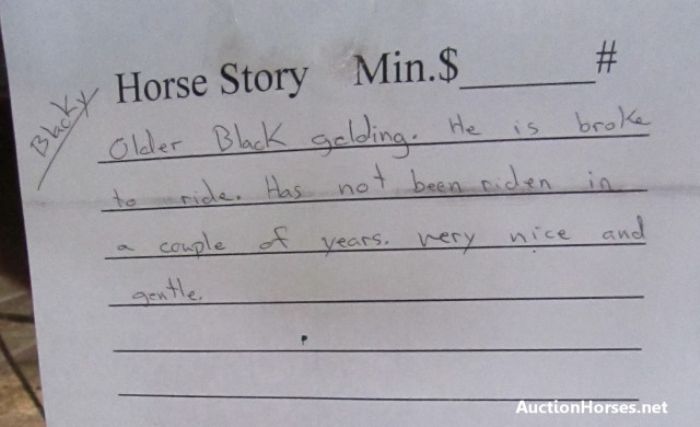 Blacky
Horse Story Min.$______ #
Older Black gelding. He is broke
to ride. Has not been riden in
a couple of years. very nice and
gentle.
AuctionHorses.net